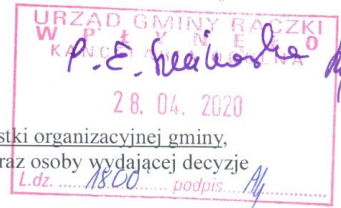 URZĄD GMINY RACZKI
WPŁYNĘŁO
P. E.
28. 04. 2020
stki organizacyjnej gminy,
raz osoby wydającej decyzje
L.dz. 18.00 podpis